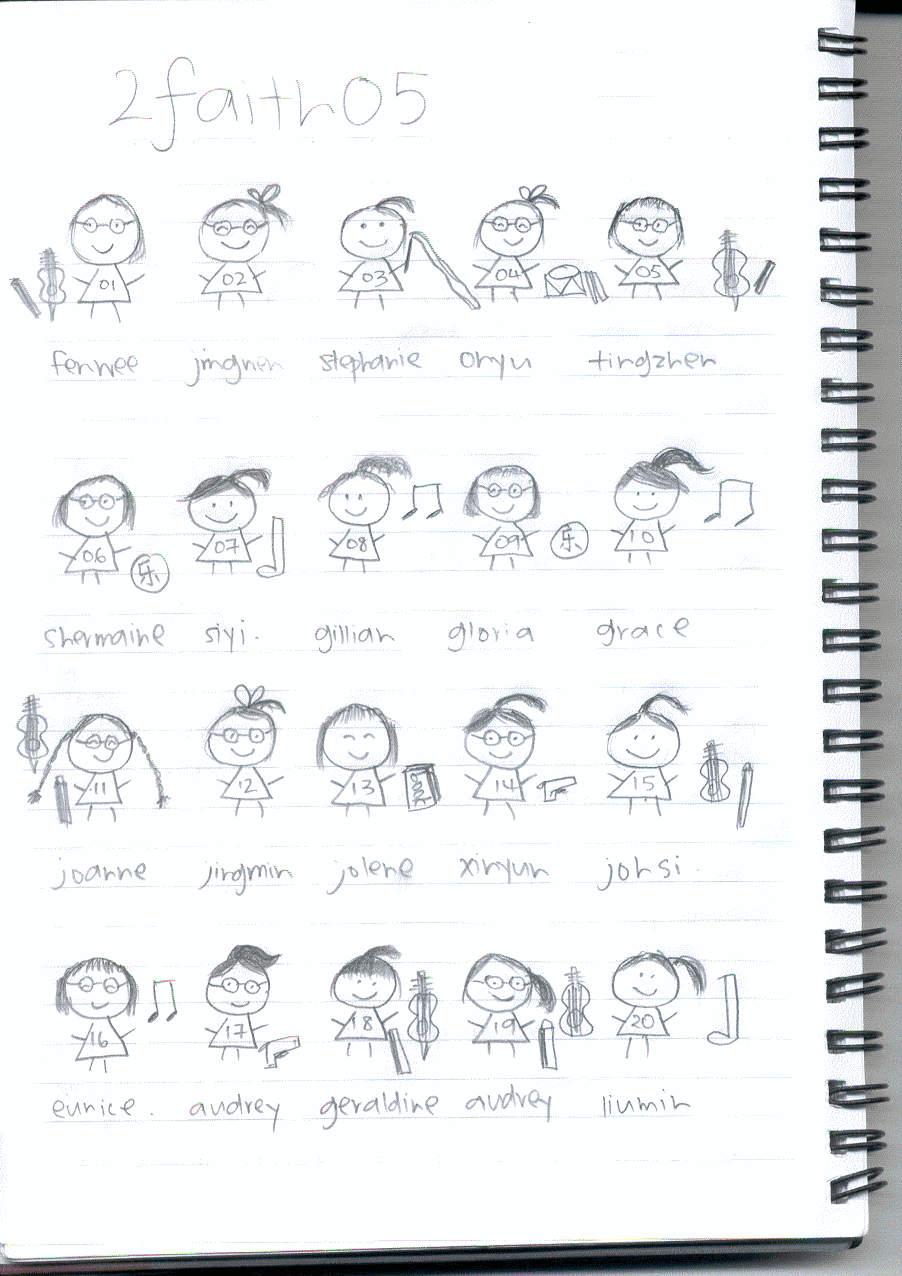 2faith05
01 02 03 04 05
fennee jingnen stephanie onyu tingzhen
06 乐 07 08 09 乐 10
shermaine siyi. gillian gloria grace
11 12 13 14 15
joanne jingmin jolene xinyun johsi.
16 17 18 19 20
eunice. audrey geraldine audrey liumin